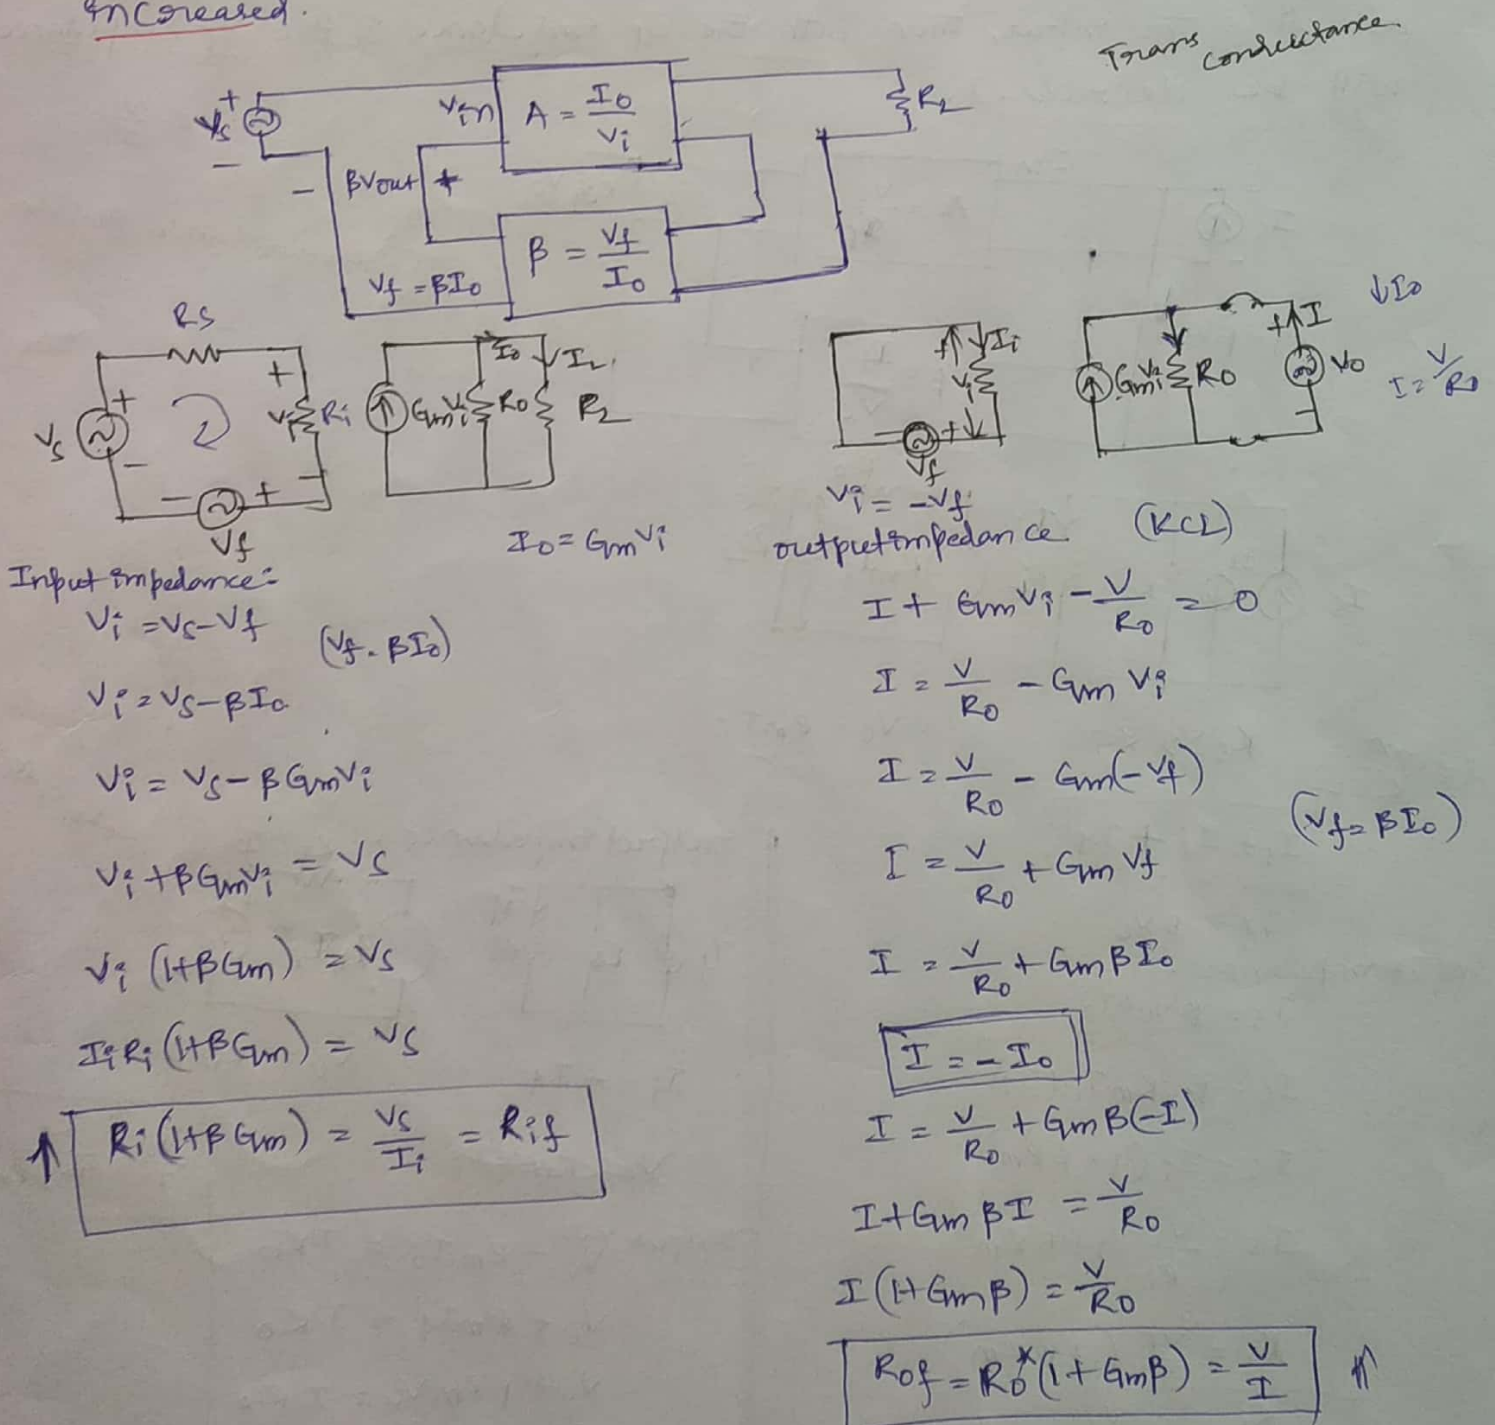 increased.
Trans conductance
Vs + −
Vin
A = Io/Vi
RL
− βVout +
β = Vf/Io
Vf = βIo
Rs
Vs + −
+ Vi − Ri
− Vf +
GmVi Ro RL
Io IL
Io = GmVi
+ Ii
Vi
− + Vf
Vi = -Vf
GmVi Ro
+ I Vo −
↓Io
I = V/Ro
Input impedance:
Vi = Vs - Vf
(Vf = βIo)
Vi = Vs - βIo
Vi = Vs - βGmVi
Vi + βGmVi = Vs
Vi (1+βGm) = Vs
IiRi (1+βGm) = Vs
↑ Ri (1+βGm) = Vs/Ii = Rif
output impedance (KCL)
I + GmVi - V/Ro = 0
I = V/Ro - Gm Vi
I = V/Ro - Gm(-Vf)
(Vf = βIo)
I = V/Ro + Gm Vf
I = V/Ro + GmβIo
I = -Io
I = V/Ro + Gmβ(-I)
I + GmβI = V/Ro
I (1+Gmβ) = V/Ro
Rof = Ro*(1+Gmβ) = V/I ↑